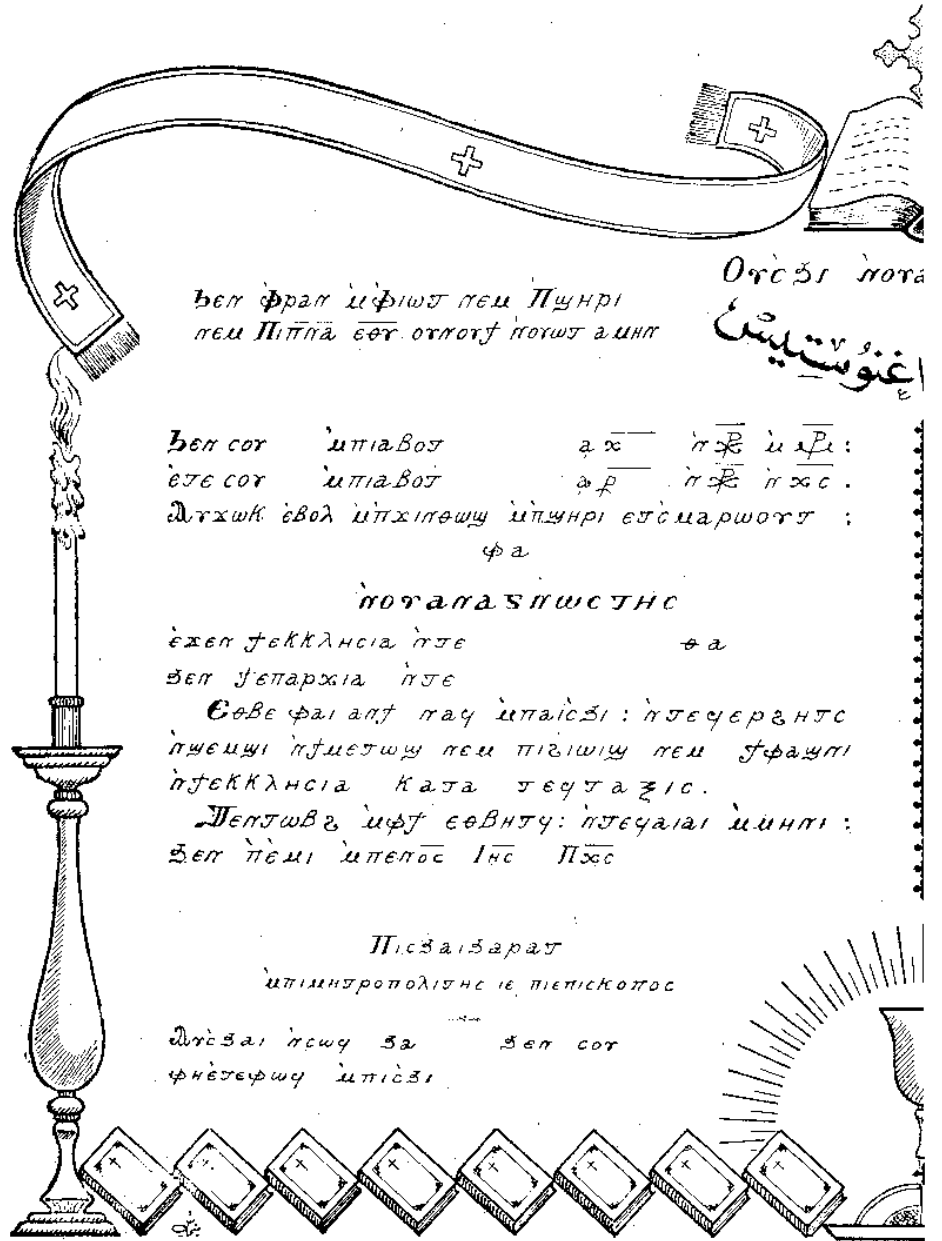 Ⲟⲩⲥ̀ϧⲓ ⲛ̀ⲟⲩⲁ
إغنوستيس
Ϧⲉⲛ ⲫ̀ⲣⲁⲛ ⲙ̀ⲫⲓⲱⲧ ⲛⲉⲙ Ⲡϣⲏⲣⲓ
ⲛⲉⲙ Ⲡⲓⲡ̅ⲛ̅ⲁ̅ ⲉ̅ⲑ̅ⲩ̅ ⲟⲩⲛⲟⲩϯ ⲛ̀ⲟⲩⲱⲧ ⲁⲙⲏⲛ
Ϧⲉⲛ ⲥⲟⲩ ⲙ̀ⲡⲓⲁⲃⲟⲧ
ⲉ̀ⲧⲉ ⲥⲟⲩ ⲙ̀ⲡⲓⲁⲃⲟⲧ ⲛ̀ⲭ̅ⲥ̅ .
Ⲁⲩϫⲱⲕ ⲉ̀ⲃⲟⲗ ⲙ̀ⲡϫⲓⲛⲑⲱϣ ⲙ̀ⲡϣⲏⲣⲓ ⲉⲧⲥ̀ⲙⲁⲣⲱⲟⲩⲧ :
ⲫⲁ
ⲛ̀ⲟⲩⲁⲛⲁⲅⲛⲱⲥⲧⲏⲥ
ⲉ̀ϫⲉⲛ ϯⲉⲕⲕⲗⲏⲥⲓⲁ ⲛ̀ⲧⲉ ⲑⲁ
ϧⲉⲛ ϯⲉⲡⲁⲣⲭⲓⲁ ⲛ̀ⲧⲉ
Ⲉⲑⲃⲉ ⲫⲁⲓ ⲁⲛϯ ⲛⲁϥ ⲙ̀ⲡⲁⲓⲥ̀ϧⲓ : ⲛ̀ⲧⲉϥⲉⲣϩⲏⲧⲥ
ⲛ̀ϣⲉⲙϣⲓ ⲛ̀ϯⲙⲉⲧⲱϣ ⲛⲉⲙ ⲡⲓϩⲓⲱⲓϣ ⲛⲉⲙ ϯⲫⲁϣⲛⲓ
ⲛ̀ϯⲉⲕⲕⲗⲏⲥⲓⲁ ⲕⲁⲧⲁ ⲧⲉϥⲧⲁⲝⲓⲥ .
Ⲧⲉⲛⲧⲱⲃϩ ⲙ̀ⲫϯ ⲉⲑⲃⲏⲧϥ : ⲛ̀ⲧⲉϥⲁⲓⲁⲓ ⲙ̀ⲙⲏⲛⲓ :
ϧⲉⲛ ⲡ̀ⲉ̀ⲙⲓ ⲙ̀ⲡⲉⲛⲟ̅ⲥ̅ Ⲓⲏ̅ⲥ̅ Ⲡⲭ̅ⲥ̅
Ⲡⲓⲥϧⲁⲓϧⲁⲣⲁⲧ
ⲙ̀ⲡⲓⲙⲏⲧⲣⲟⲡⲟⲗⲓⲧⲏⲥ ⲓⲉ ⲡⲓⲉⲡⲓⲥⲕⲟⲡⲟⲥ
Ⲁⲩⲥ̀ϧⲁⲓ ⲛ̀ⲥⲱϥ ϧⲁ ϧⲉⲛ ⲥⲟⲩ
ⲫⲏⲉ̀ⲧⲉⲫⲱϥ ⲙ̀ⲡⲓⲥ̀ϧⲓ